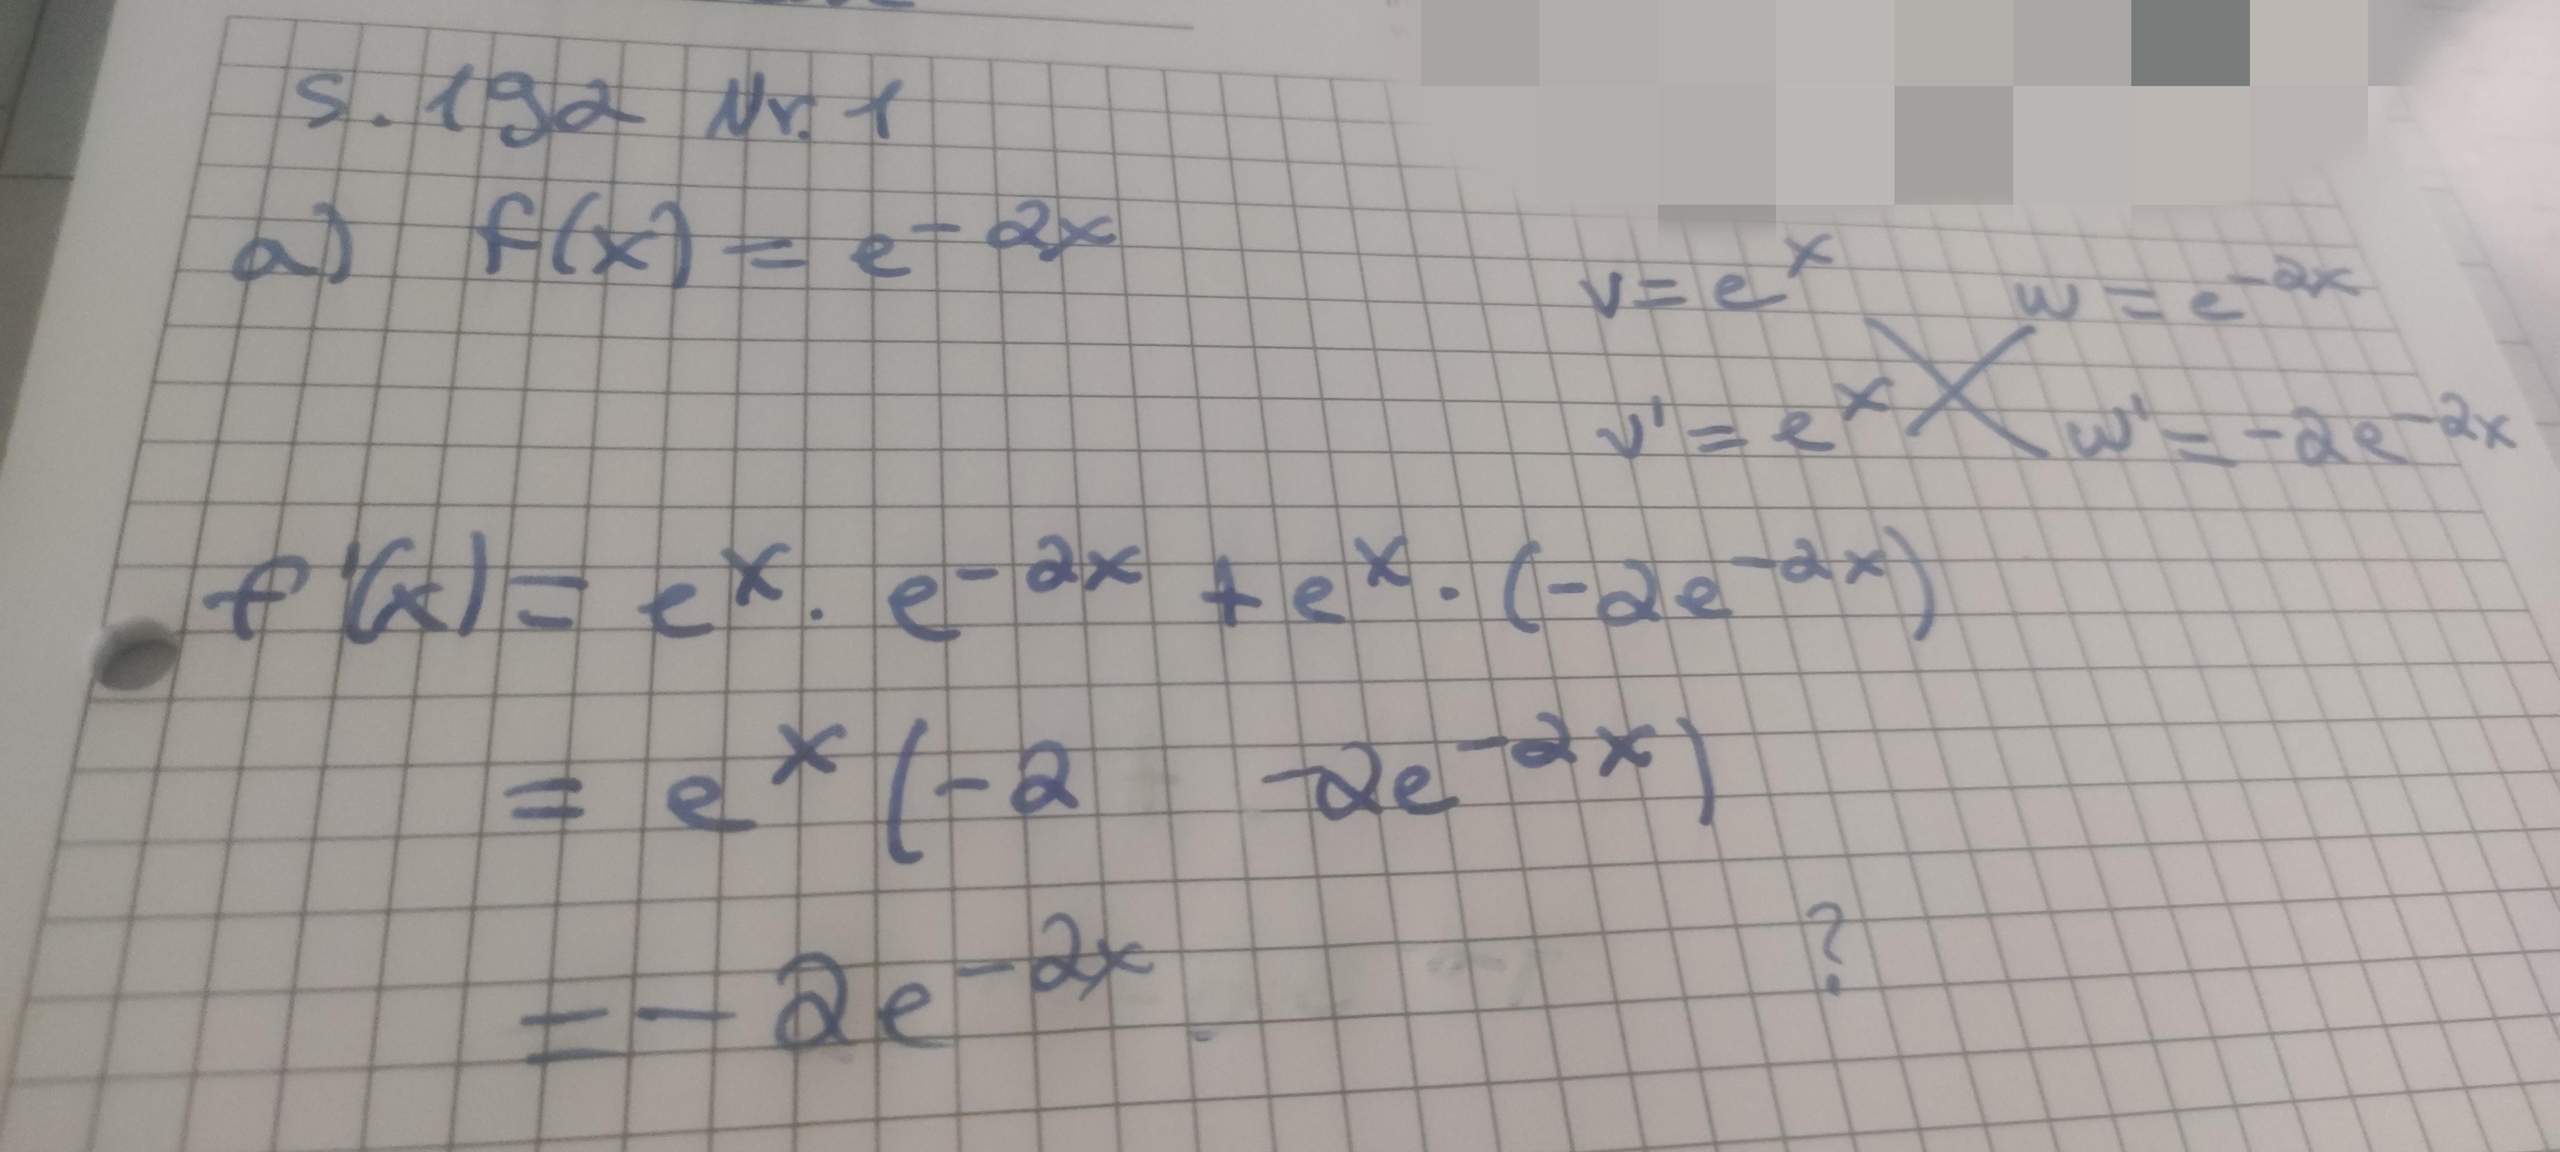 S. 192 Nr. 1
a) f(x) = e^{-2x}
v = e^x w = e^{-2x}
v' = e^x w' = -2e^{-2x}
f'(x) = e^x · e^{-2x} + e^x · (-2e^{-2x})
= e^x (-2 -2e^{-2x})
= -2e^{-2x} ?